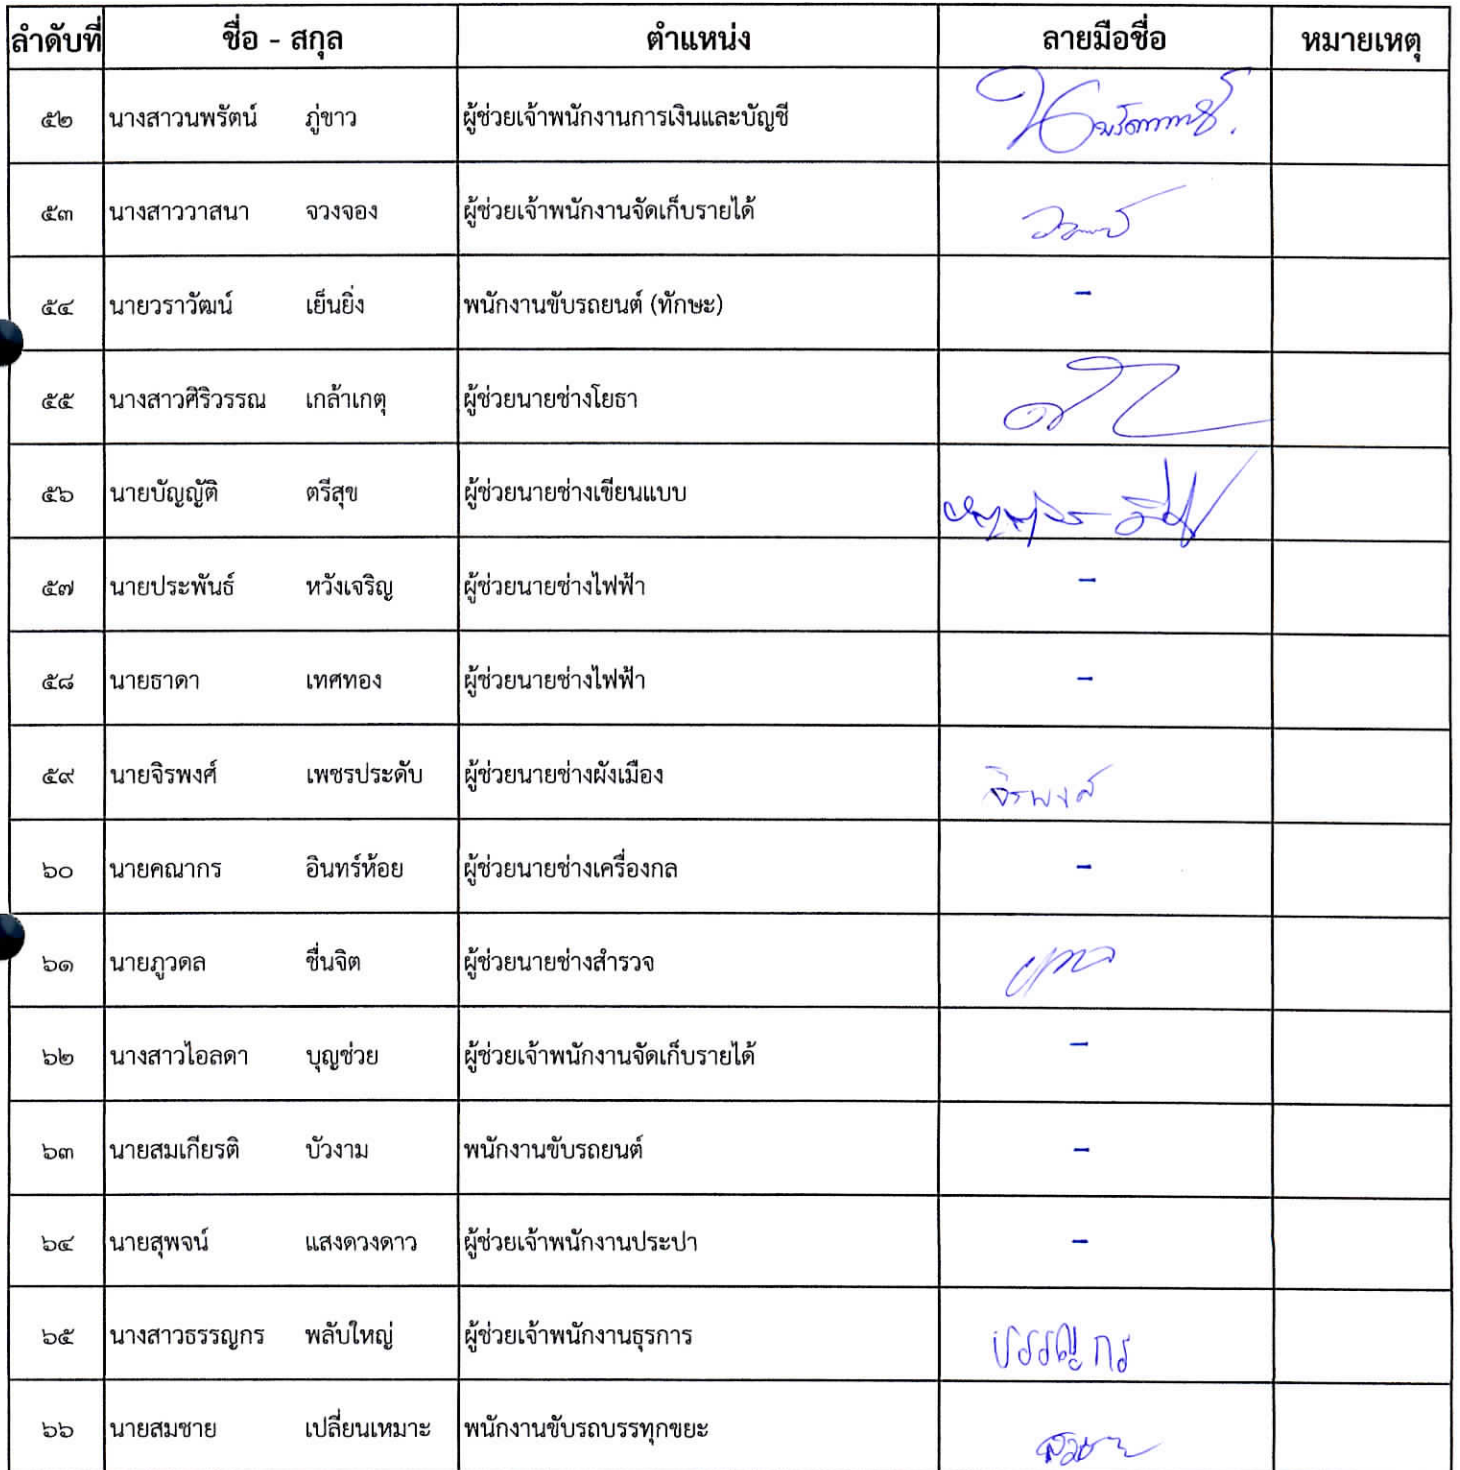 ลำดับที่ ชื่อ - สกุล ตำแหน่ง ลายมือชื่อ หมายเหตุ
๕๒ นางสาวนพรัตน์ ภู่ขาว ผู้ช่วยเจ้าพนักงานการเงินและบัญชี
๕๓ นางสาววาสนา จวงจอง ผู้ช่วยเจ้าพนักงานจัดเก็บรายได้
๕๔ นายวราวัฒน์ เย็นยิ่ง พนักงานขับรถยนต์ (ทักษะ) -
๕๕ นางสาวศิริวรรณ เกล้าเกตุ ผู้ช่วยนายช่างโยธา
๕๖ นายบัญญัติ ตรีสุข ผู้ช่วยนายช่างเขียนแบบ
๕๗ นายประพันธ์ หวังเจริญ ผู้ช่วยนายช่างไฟฟ้า -
๕๘ นายธาดา เทศทอง ผู้ช่วยนายช่างไฟฟ้า -
๕๙ นายจิรพงศ์ เพชรประดับ ผู้ช่วยนายช่างผังเมือง จิรพงศ์
๖๐ นายคณากร อินทร์ห้อย ผู้ช่วยนายช่างเครื่องกล -
๖๑ นายภูวดล ชื่นจิต ผู้ช่วยนายช่างสำรวจ
๖๒ นางสาวไอลดา บุญช่วย ผู้ช่วยเจ้าพนักงานจัดเก็บรายได้ -
๖๓ นายสมเกียรติ บัวงาม พนักงานขับรถยนต์ -
๖๔ นายสุพจน์ แสงดวงดาว ผู้ช่วยเจ้าพนักงานประปา -
๖๕ นางสาวธรรญกร พลับใหญ่ ผู้ช่วยเจ้าพนักงานธุรการ ธรรญกร
๖๖ นายสมชาย เปลี่ยนเหมาะ พนักงานขับรถบรรทุกขยะ